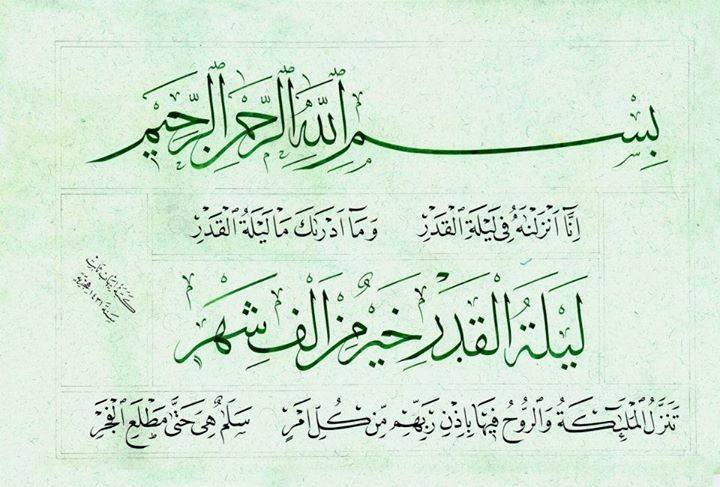 بِسْمِ اللهِ الرَّحْمنِ الرَّحِيمِ
اِنَّا اَنْزَلْنٰهُ فِي لَيْلَةِ الْقَدْرِ وَمَآ اَدْرٰىكَ مَا لَيْلَةُ الْقَدْرِ
لَيْلَةُ الْقَدْرِ خَيْرٌ مِنْ اَلْفِ شَهْرٍ
تَنَزَّلُ الْمَلٰٓئِكَةُ وَالرُّوحُ فِيهَا بِاِذْنِ رَبِّهِمْ مِنْ كُلِّ اَمْرٍ سَلٰمٌ هِيَ حَتّٰى مَطْلَعِ الْفَجْرِ